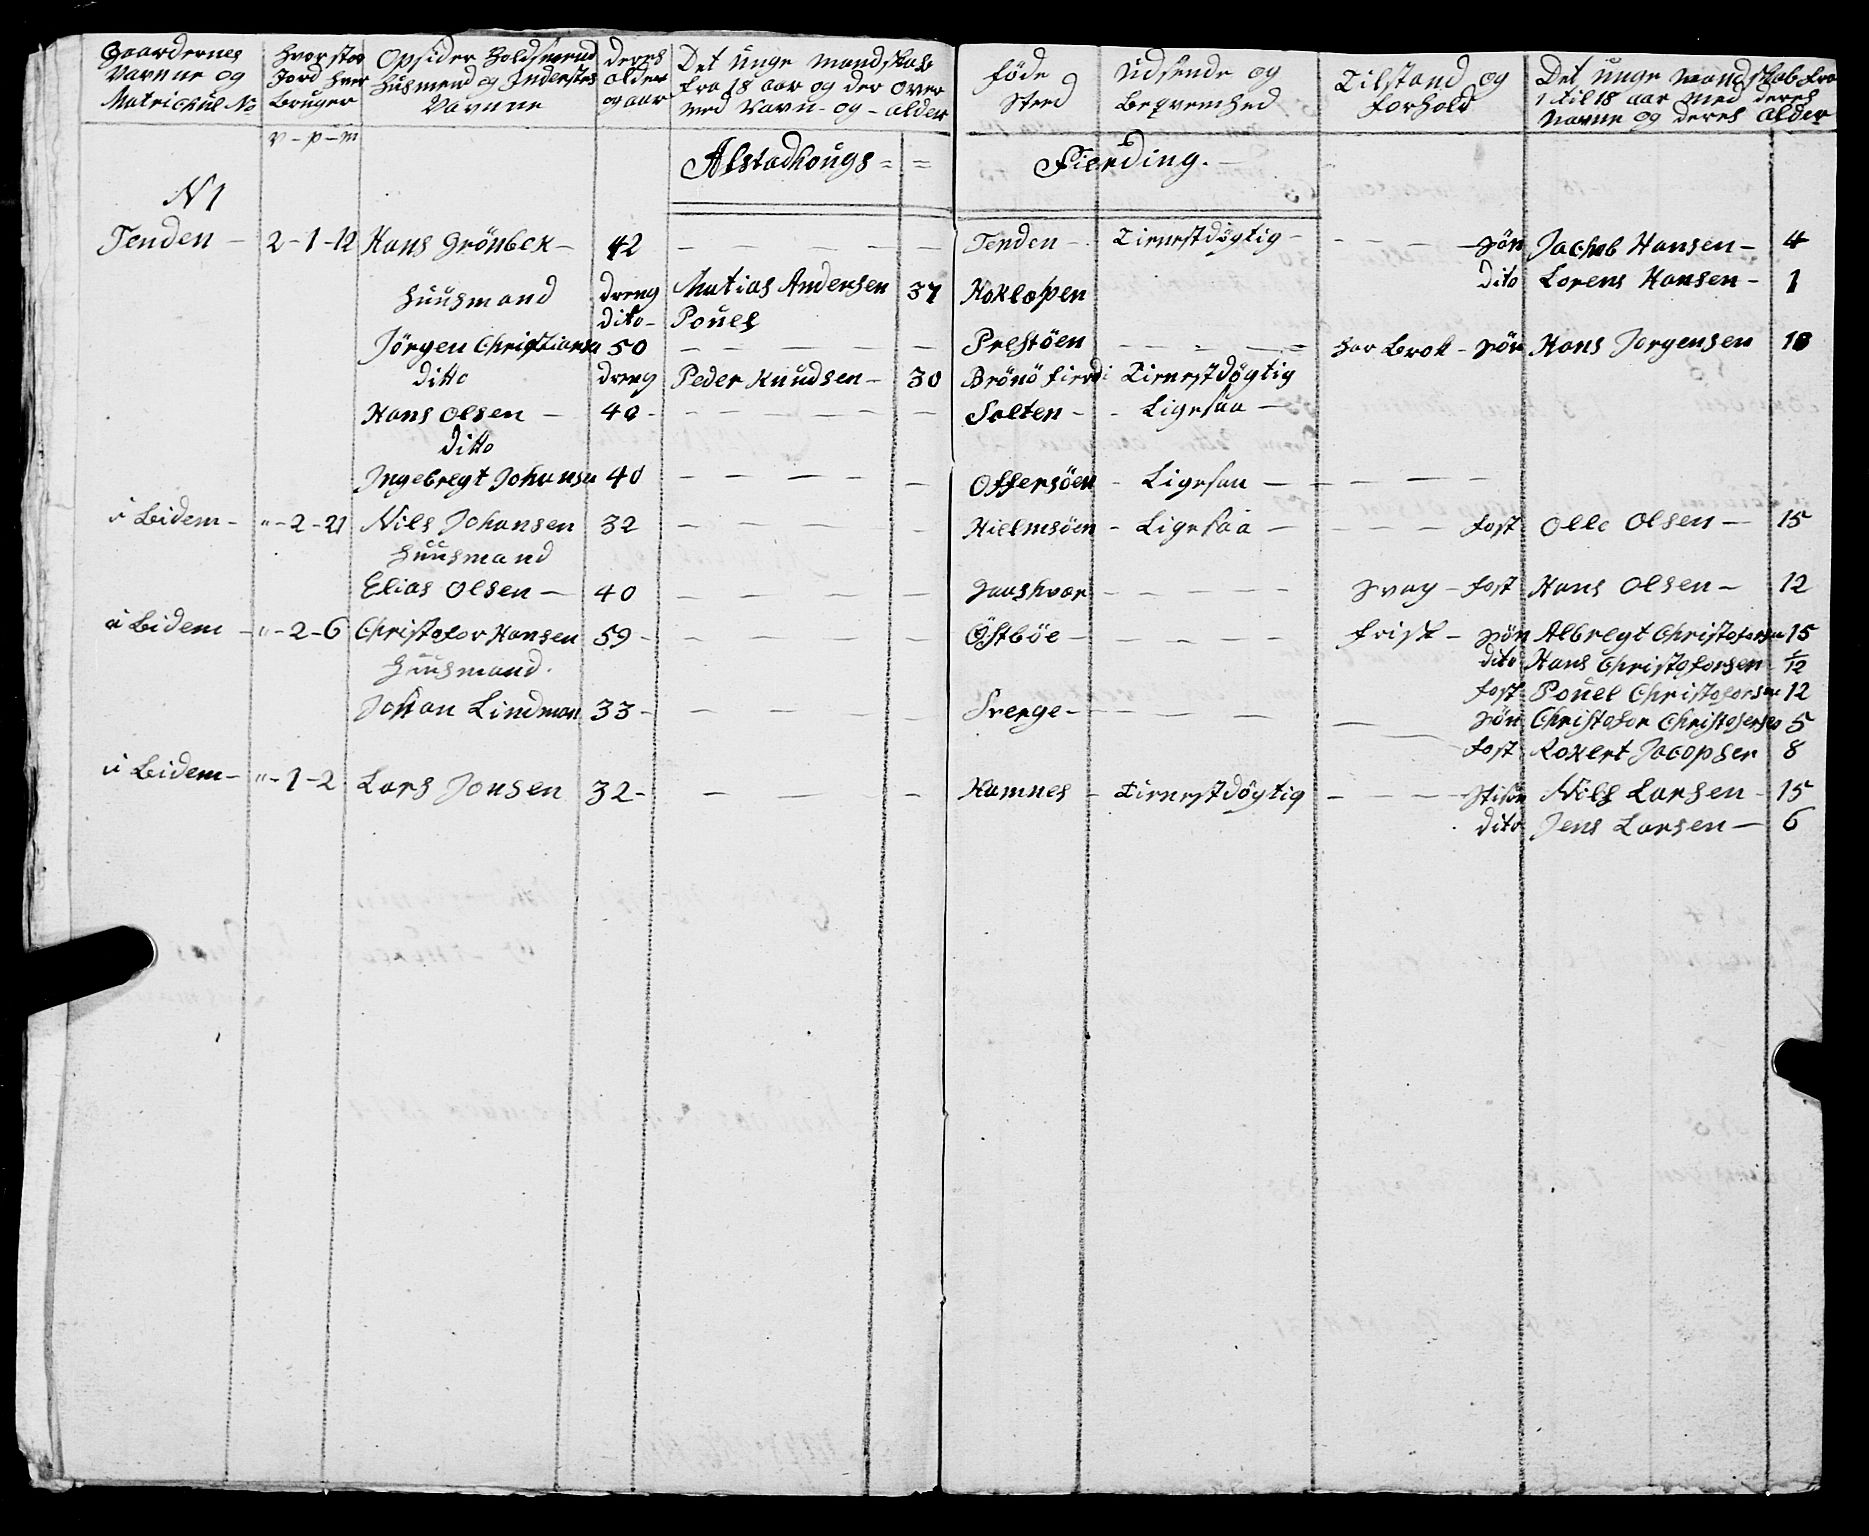 Gaardernes Navnne og Matrichul No
Hvor stor Jord hver Bruger
Opsider Holdsmend Husmend og Inderstes Navnne
deres alder og aar
Det unge Mandskab fra 18 aar og der over med Navn - og - alder
føde Sted
Udsende og Beqvemhed
Tilstand og forhold
Det unge Mandskab fra 1 til 18 aar med deres Navne og deres alder
v - p - m
Alstadhougs = = Fierding. -
N 1
Tenden - 2 - 1 - 12 Hans Grönbek - 42 - - - - Tenden - Tienestdögtig - - - - søn Jachob Hansen - 4
dito Lorens Hansen - 1
Huusmand dreng Matias Andersen 37
dito - Pouel
Jörgen Christiansn 50 - - - - - Prestöen - - - - har Brok - søn Hans Jorgensen 18
ditto dreng Peder Knudsen - 30 Brönö fierdi Tienestdögtig
Hans Olsen - 40 - - - - - - Salten - - Ligesaa -
ditto
Ingebregt Johansn 40 - - - - - Offersöen - Ligesaa - - - - -
i Bidem - " - 2 - 21 Nils Johansen 32 - - - - - Hielmsöen - Ligesaa - - - - fost Olle Olsen - 15
Huusmand
Elias Olsen - 40 - - - - - - - - - - svag - fost Hans Olsen - 12
i Bidem - " - 2 - 6 Christofor Hansen 59 - - - - - - Östböe - - - - - frisk - søn Albregt Christoforsn 15
Huusmand. dito Hans Christoforsen 1/12
fost Pouel Christoforsn 12
Johan Lindman 33 - - - - - - Sverge - - - - - søn Christofor Christofersen 5
fost Jacopsen 8
i Bidem - " - 1 - 2 Lars Jonsen 32 - - - - - Hamnes - Tienestdögtig - - - stisön Nils Larsen - 15
dito Jens Larsen - 6